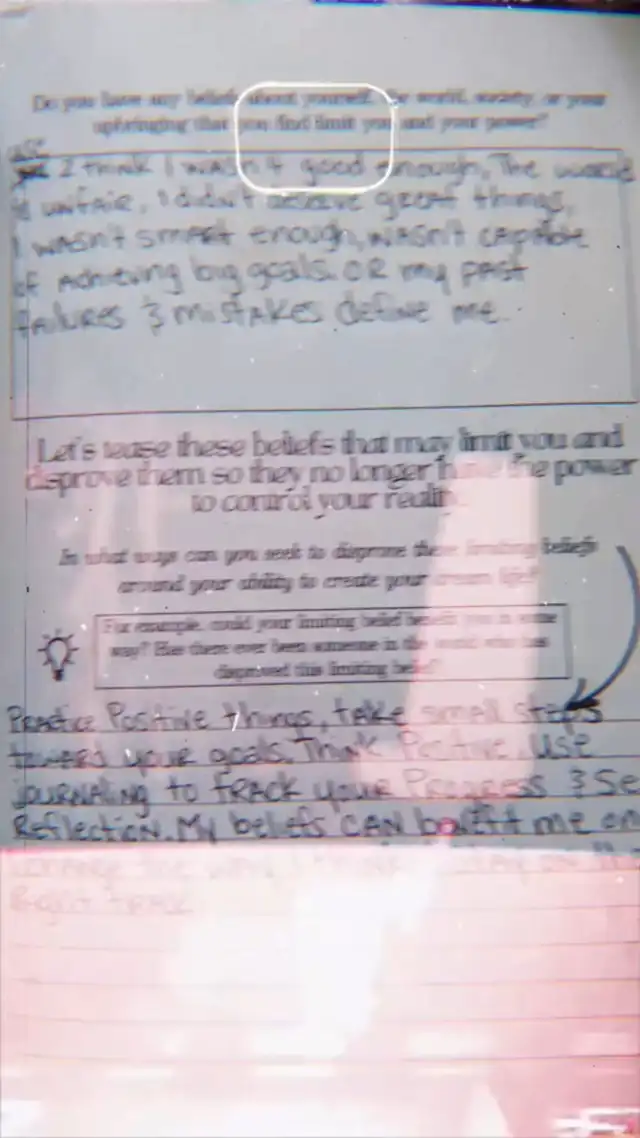 Do you have any beliefs about yourself, the world, society, or your
upbringing that you find limit you and your power?
I think I wasn't good enough, The world
unfair, I didn't deserve great things,
I wasn't smart enough, wasn't capable
of achieving big goals. OR my past
failures & mistakes define me.
Let's tease these beliefs that may limit you and
disprove them so they no longer have the power
to control your reality.
In what ways can you seek to disprove these limiting beliefs
around your ability to create your dream life?
For example, could your limiting belief benefit you in some
way? Has there ever been someone in the world who has
disproved this limiting belief?
Practice Positive things, take small steps
toward your goals. Think Positive. Use
journaling to track your Progress & Se
Reflection. My beliefs can benefit me on
the way I think stay on the
Right track.